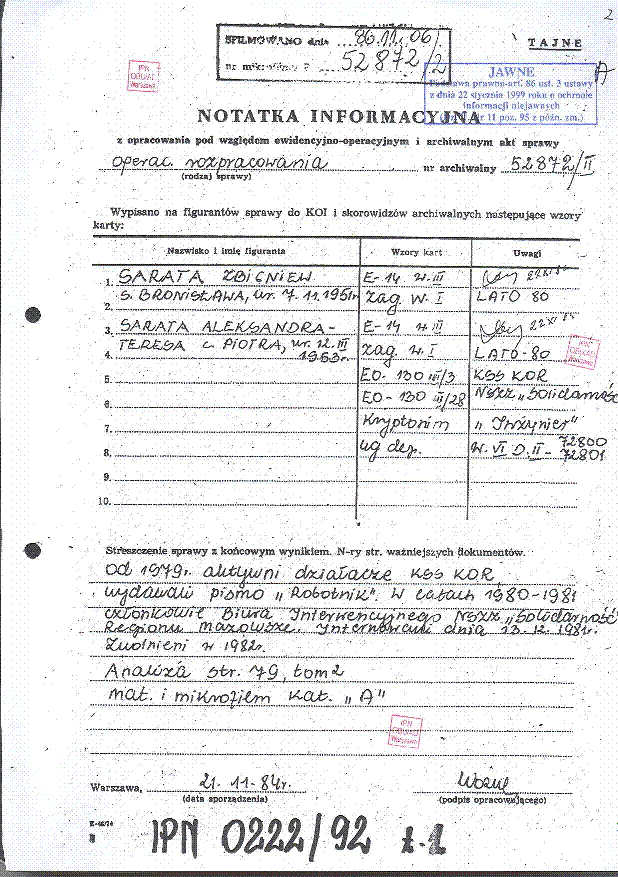 2
SFILMOWANO dnia 86.11.06/
nr mikrofiszy P 52872/2
TAJNE
IPN
OBUiAD
Warszawa
JAWNE
Podstawa prawna-art. 86 ust. 3 ustawy
z dnia 22 stycznia 1999 roku o ochronie
informacji niejawnych
Nr 11 poz. 95 z późn. zm.)
A
NOTATKA INFORMACYJNA
z opracowania pod względem ewidencyjno-operacyjnym i archiwalnym akt sprawy
operac. rozpracowania nr archiwalny 52872/II
(rodzaj sprawy)
Wypisano na figurantów sprawy do KOI i skorowidzów archiwalnych następujące wzory
karty:
Nazwisko i imię figuranta Wzory kart Uwagi
1. SARATA ZBIGNIEW E-14 w. III
2. s. BRONISŁAWA, ur. 7.11.1951r zag. w. I LATO 80
3. SARATA ALEKSANDRA- E-14 w III
4. TERESA c. PIOTRA, ur. 12.III 1953r. zag. w. I LATO-80
5. EO-130 III/3 KSS KOR
6. EO-130 III/28 NSZZ „Solidarność
7. Kryptonim „Inżynier"
8. wg dep. W. VI D. II - 72800
72801
9.
10.
Streszczenie sprawy z końcowym wynikiem. N-ry str. ważniejszych dokumentów.
Od 1979r. aktywni działacze KSS KOR,
wydawali pismo „Robotnik". W latach 1980-1981
członkowie Biura Interwencyjnego NSZZ „Solidarność"
Regionu Mazowsze. Internowani dnia 13.12.1981r.
Zwolnieni w 1982r.
Analiza str. 79, tom 2
mat. i mikrofilm kat. „A"
IPN
OBUiAD
Warszawa
Warszawa, 21.11.84r.
(data sporządzenia) (podpis opracowującego)
IPN 0222/92 t.1